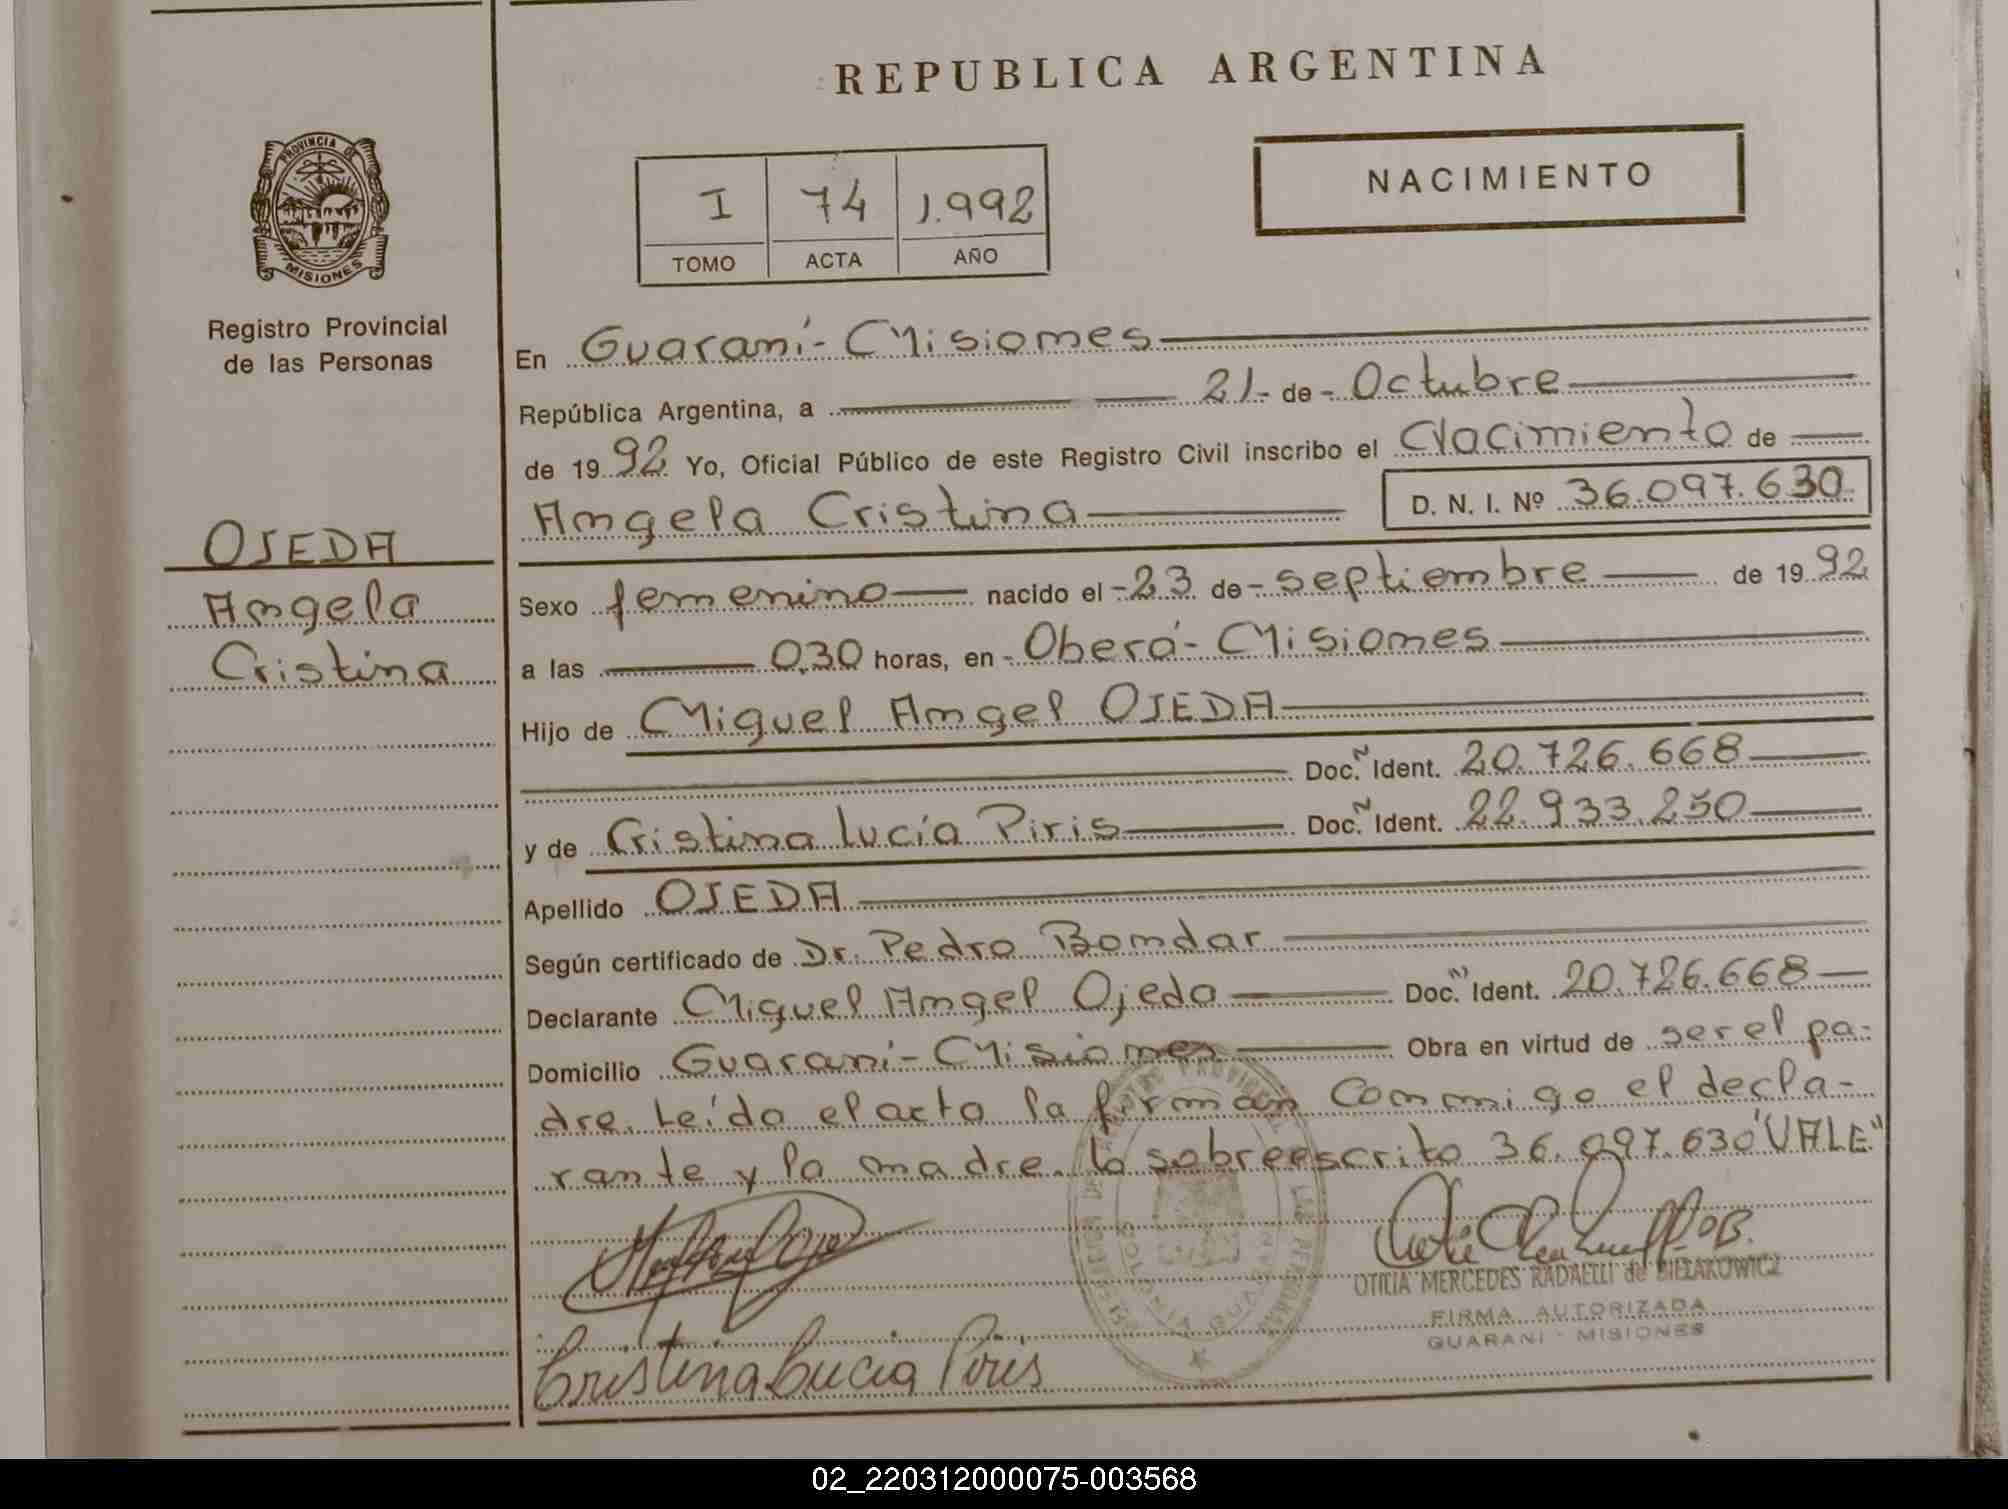 REPUBLICA ARGENTINA
NACIMIENTO
I 74 1.992
TOMO ACTA AÑO
PROVINCIA DE
MISIONES
Registro Provincial
de las Personas
OJEDA
Angela
Cristina
En Guaraní - Misiones
República Argentina, a 21 - de - Octubre
de 19 92 Yo, Oficial Público de este Registro Civil inscribo el Nacimiento de
Angela Cristina D. N. I. Nº 36.097.630
Sexo femenino nacido el - 23 de - septiembre de 19 92
a las 0,30 horas, en - Oberá - Misiones
Hijo de Miguel Angel OJEDA
Doc. Ident. 20.726.668
y de Cristina Lucía Piris Doc. Ident. 22.933.250
Apellido OJEDA
Según certificado de Dr. Pedro Bondar
Declarante Miguel Angel Ojeda Doc. Ident. 20.726.668
Domicilio Guaraní - Misiones Obra en virtud de ser el pa-
dre. Leído el acta la firman conmigo el decla-
rante y la madre. lo sobreescrito 36.097.630 "VALE"
OTILIA MERCEDES RADAELLI de BIELAKOWICZ
FIRMA AUTORIZADA
GUARANI - MISIONES
Cristina Lucia Piris
02_220312000075-003568